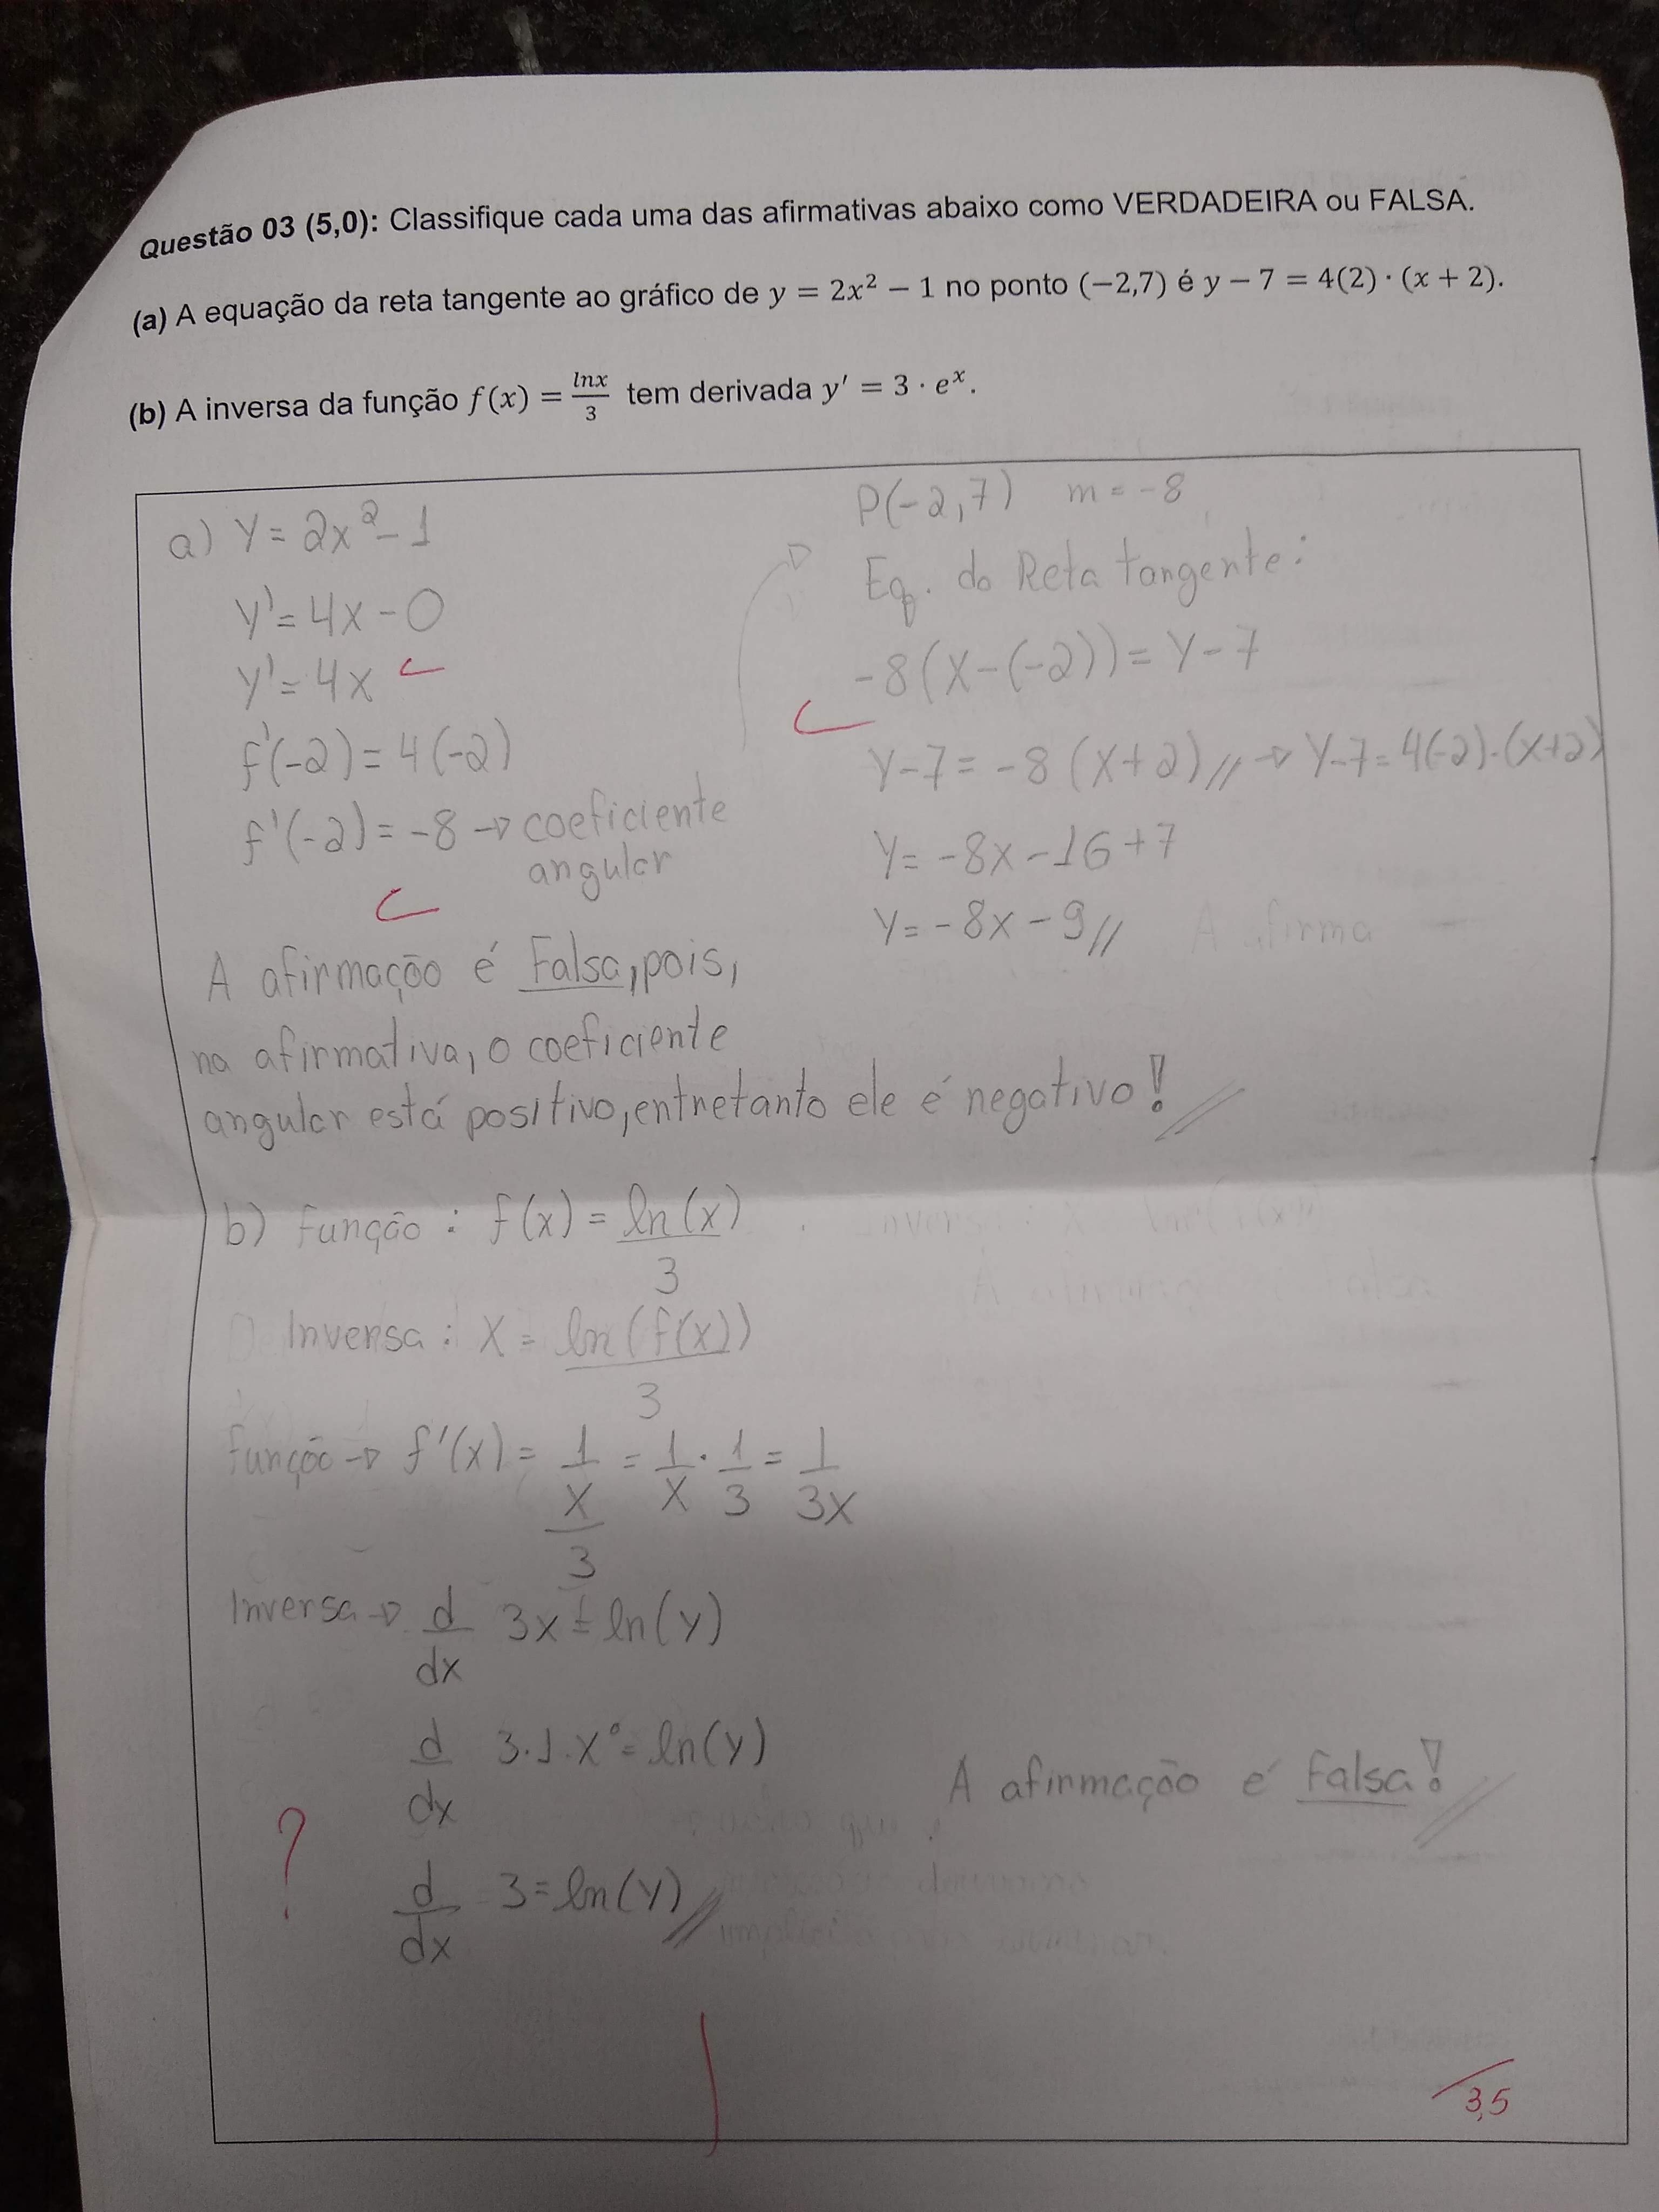 Questão 03 (5,0): Classifique cada uma das afirmativas abaixo como VERDADEIRA ou FALSA.
(a) A equação da reta tangente ao gráfico de y = 2x² − 1 no ponto (−2,7) é y − 7 = 4(2) · (x + 2).
(b) A inversa da função f(x) = lnx/3 tem derivada y' = 3 · eˣ.
a) Y = 2x² - 1
Y' = 4x - 0
Y' = 4x
f'(-2) = 4(-2)
f'(-2) = -8 → coeficiente
angular
P(-2,7) m = -8
Eq. da Reta tangente:
-8(x-(-2)) = Y-7
Y-7 = -8(x+2)// → Y-7 = 4(-2)·(x+2)
Y = -8x - 16 + 7
Y = -8x - 9//
A firma
A afirmação é Falsa, pois,
na afirmativa, o coeficiente
angular está positivo, entretanto ele é negativo!//
b) Função : f(x) = ln(x)/3
Inversa : X = ln(f(x))/3
função → f'(x) = 1/x/3 = 1/x · 1/3 = 1/3x
Inversa → d/dx 3x = ln(y)
d/dx 3·1·x⁰ = ln(y)
A afirmação é Falsa!//
?
d/dx 3 = ln(y)//
3,5